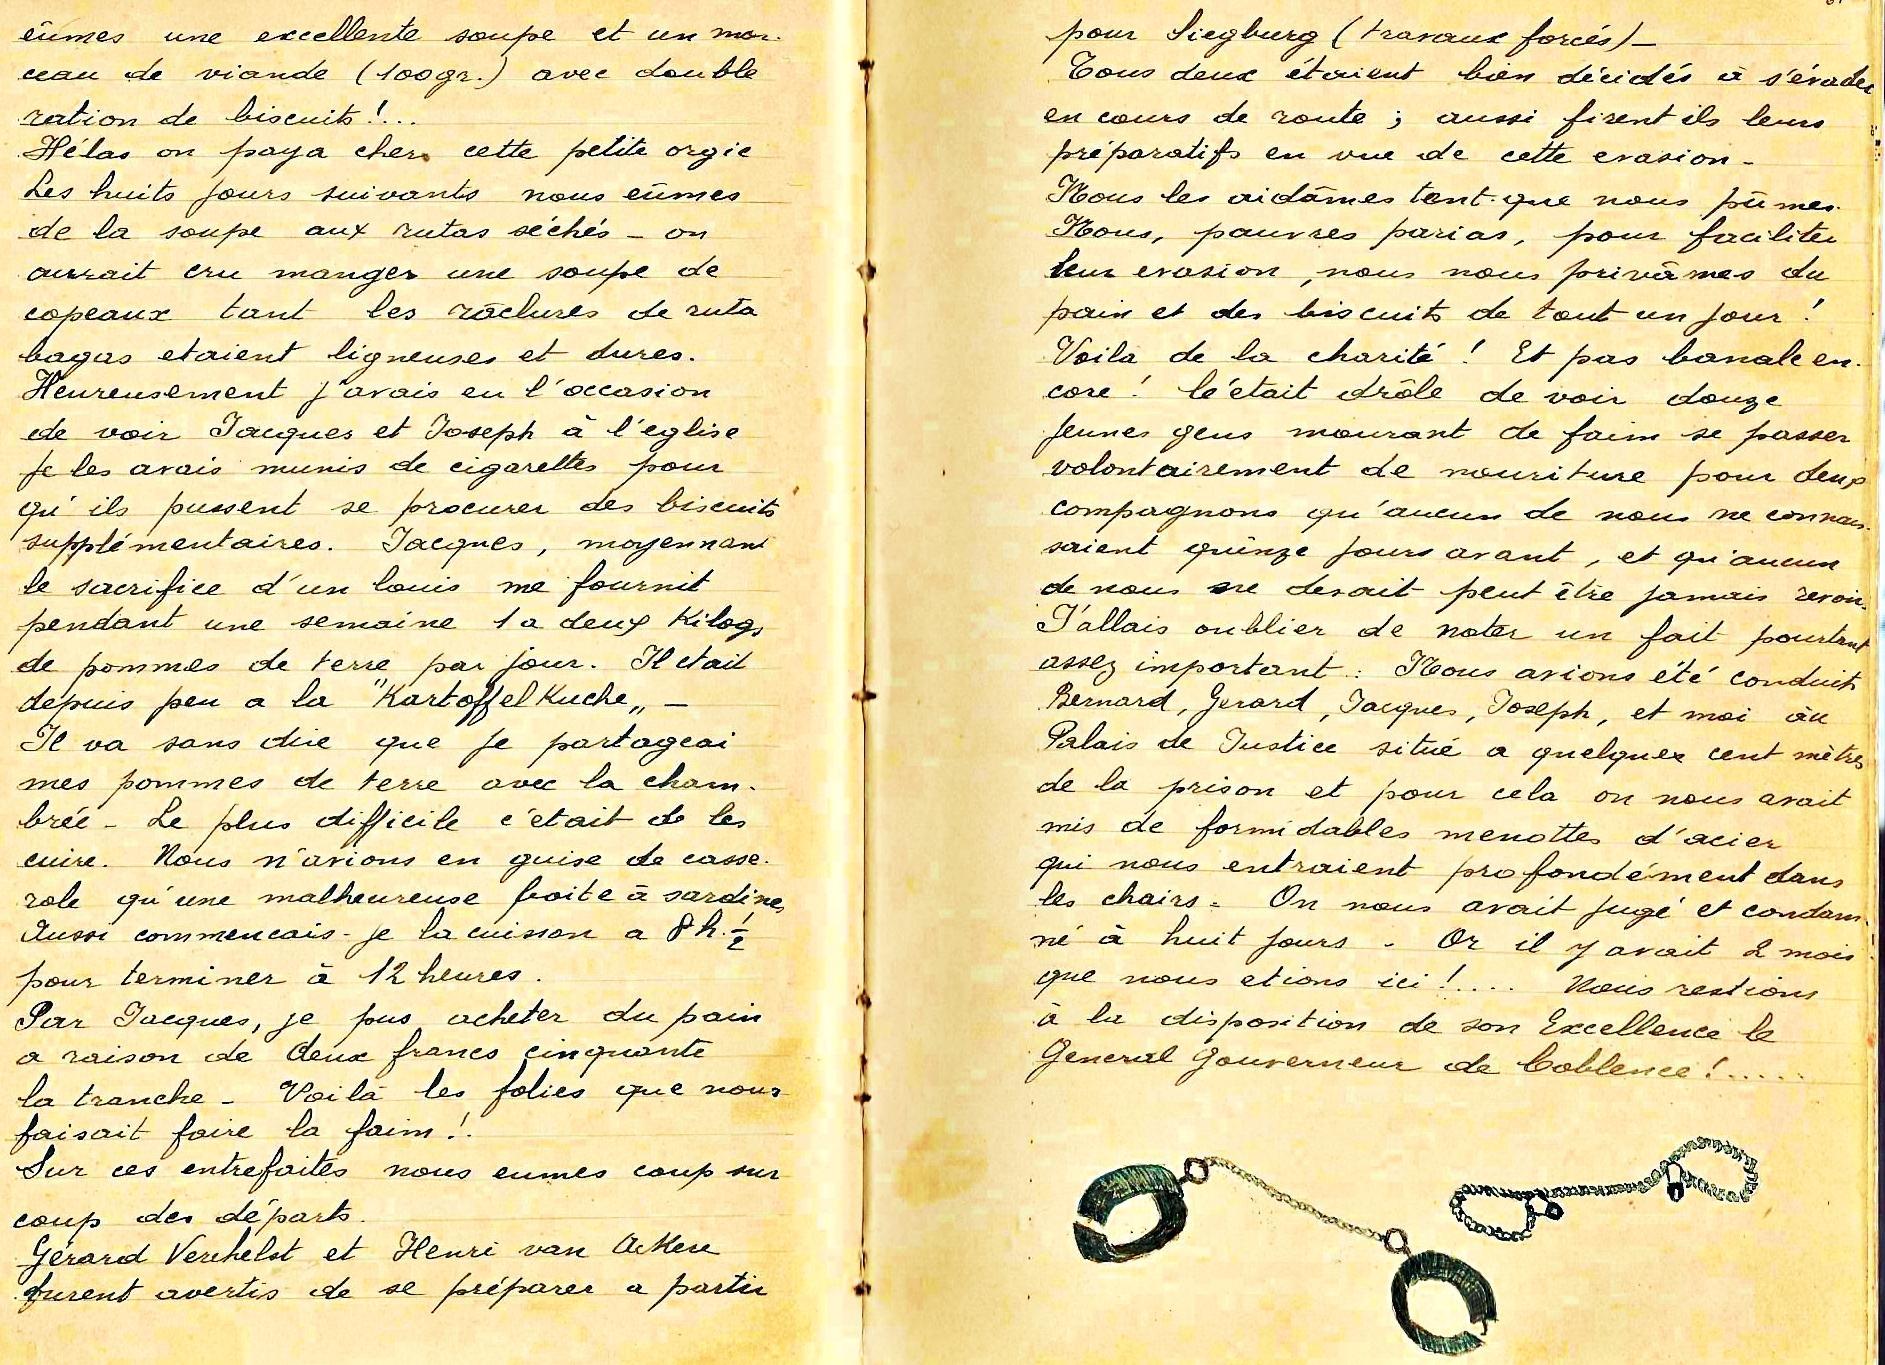 eûmes une excellente soupe et un mor-
ceau de viande (100gr.) avec double
ration de biscuits!...
Hélas on paya cher cette petite orgie
Les huits jours suivants nous eûmes
de la soupe aux rutas séchés - on
aurait cru manger une soupe de
copeaux tant les râclures de ruta
bagas etaient ligneuses et dures.
Heureusement j'avais eu l'occasion
de voir Jacques et Joseph à l'eglise
Je les avais munis de cigarettes pour
qu'ils pussent se procurer des biscuits
supplémentaires. Jacques, moyennant
le sacrifice d'un louis me fournit
pendant une semaine 1 a deux Kilogs
de pommes de terre par jour. Il etait
depuis peu a la "Kartoffelkuche„ -
Il va sans dire que je partageai
mes pommes de terre avec la cham-
brée - Le plus difficile c'etait de les
cuire. Nous n'avions en guise de casse-
role qu'une malheureuse boite à sardines
Aussi commencais-je la cuisson a 8h.½
pour terminer à 12 heures.
Par Jacques, je pus acheter du pain
a raison de deux francs cinquante
la tranche - Voilà les folies que nous
faisait faire la faim!.
Sur ces entrefaites nous eumes coup sur
coup des départs.
Gérard Verhelst et Henri van Acken
furent avertis de se préparer a partir
pour Siegburg (travaux forcés) -
Tous deux étaient bien décidés à s'évader
en cours de route ; aussi firent ils leurs
préparatifs en vue de cette evasion -
Nous les aidâmes tant que nous pûmes.
Nous, pauvres parias, pour faciliter
leur evasion, nous nous privâmes du
pain et des biscuits de tout un jour !
Voila de la charité ! Et pas banale en-
core ! Ce'était drôle de voir douze
jeunes gens mourant de faim se passer
volontairement de nouriture pour deux
compagnons qu'aucun de nous ne connais-
saient quinze jours avant, et qu'aucun
de nous ne devait peut être jamais revoir.
J'allais oublier de noter un fait pourtant
assez important : Nous avions été conduits
Bernard, Gerard, Jacques, Joseph, et moi au
Palais de Justice situé a quelques cent mètres
de la prison et pour cela on nous avait
mis de formidables menottes d'acier
qui nous entraient profondément dans
les chairs - On nous avait jugé et condam-
né à huit jours - Or il y avait 2 mois
que nous etions ici !.... Nous restions
à la disposition de son Excellence le
General Gouverneur de Coblence !.....